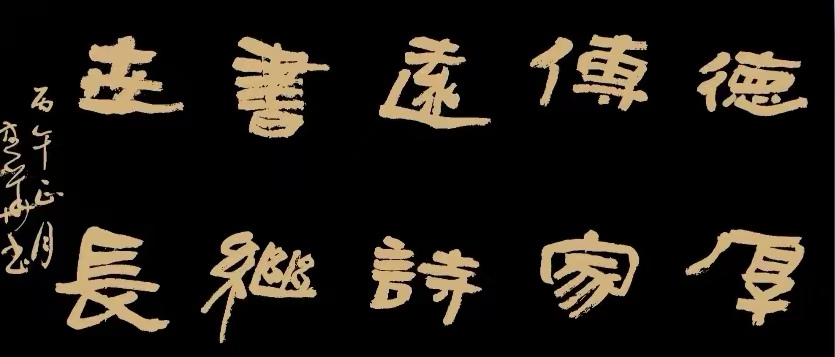 德厚
傳家
遠詩
書繼
世長
丙午正月
書